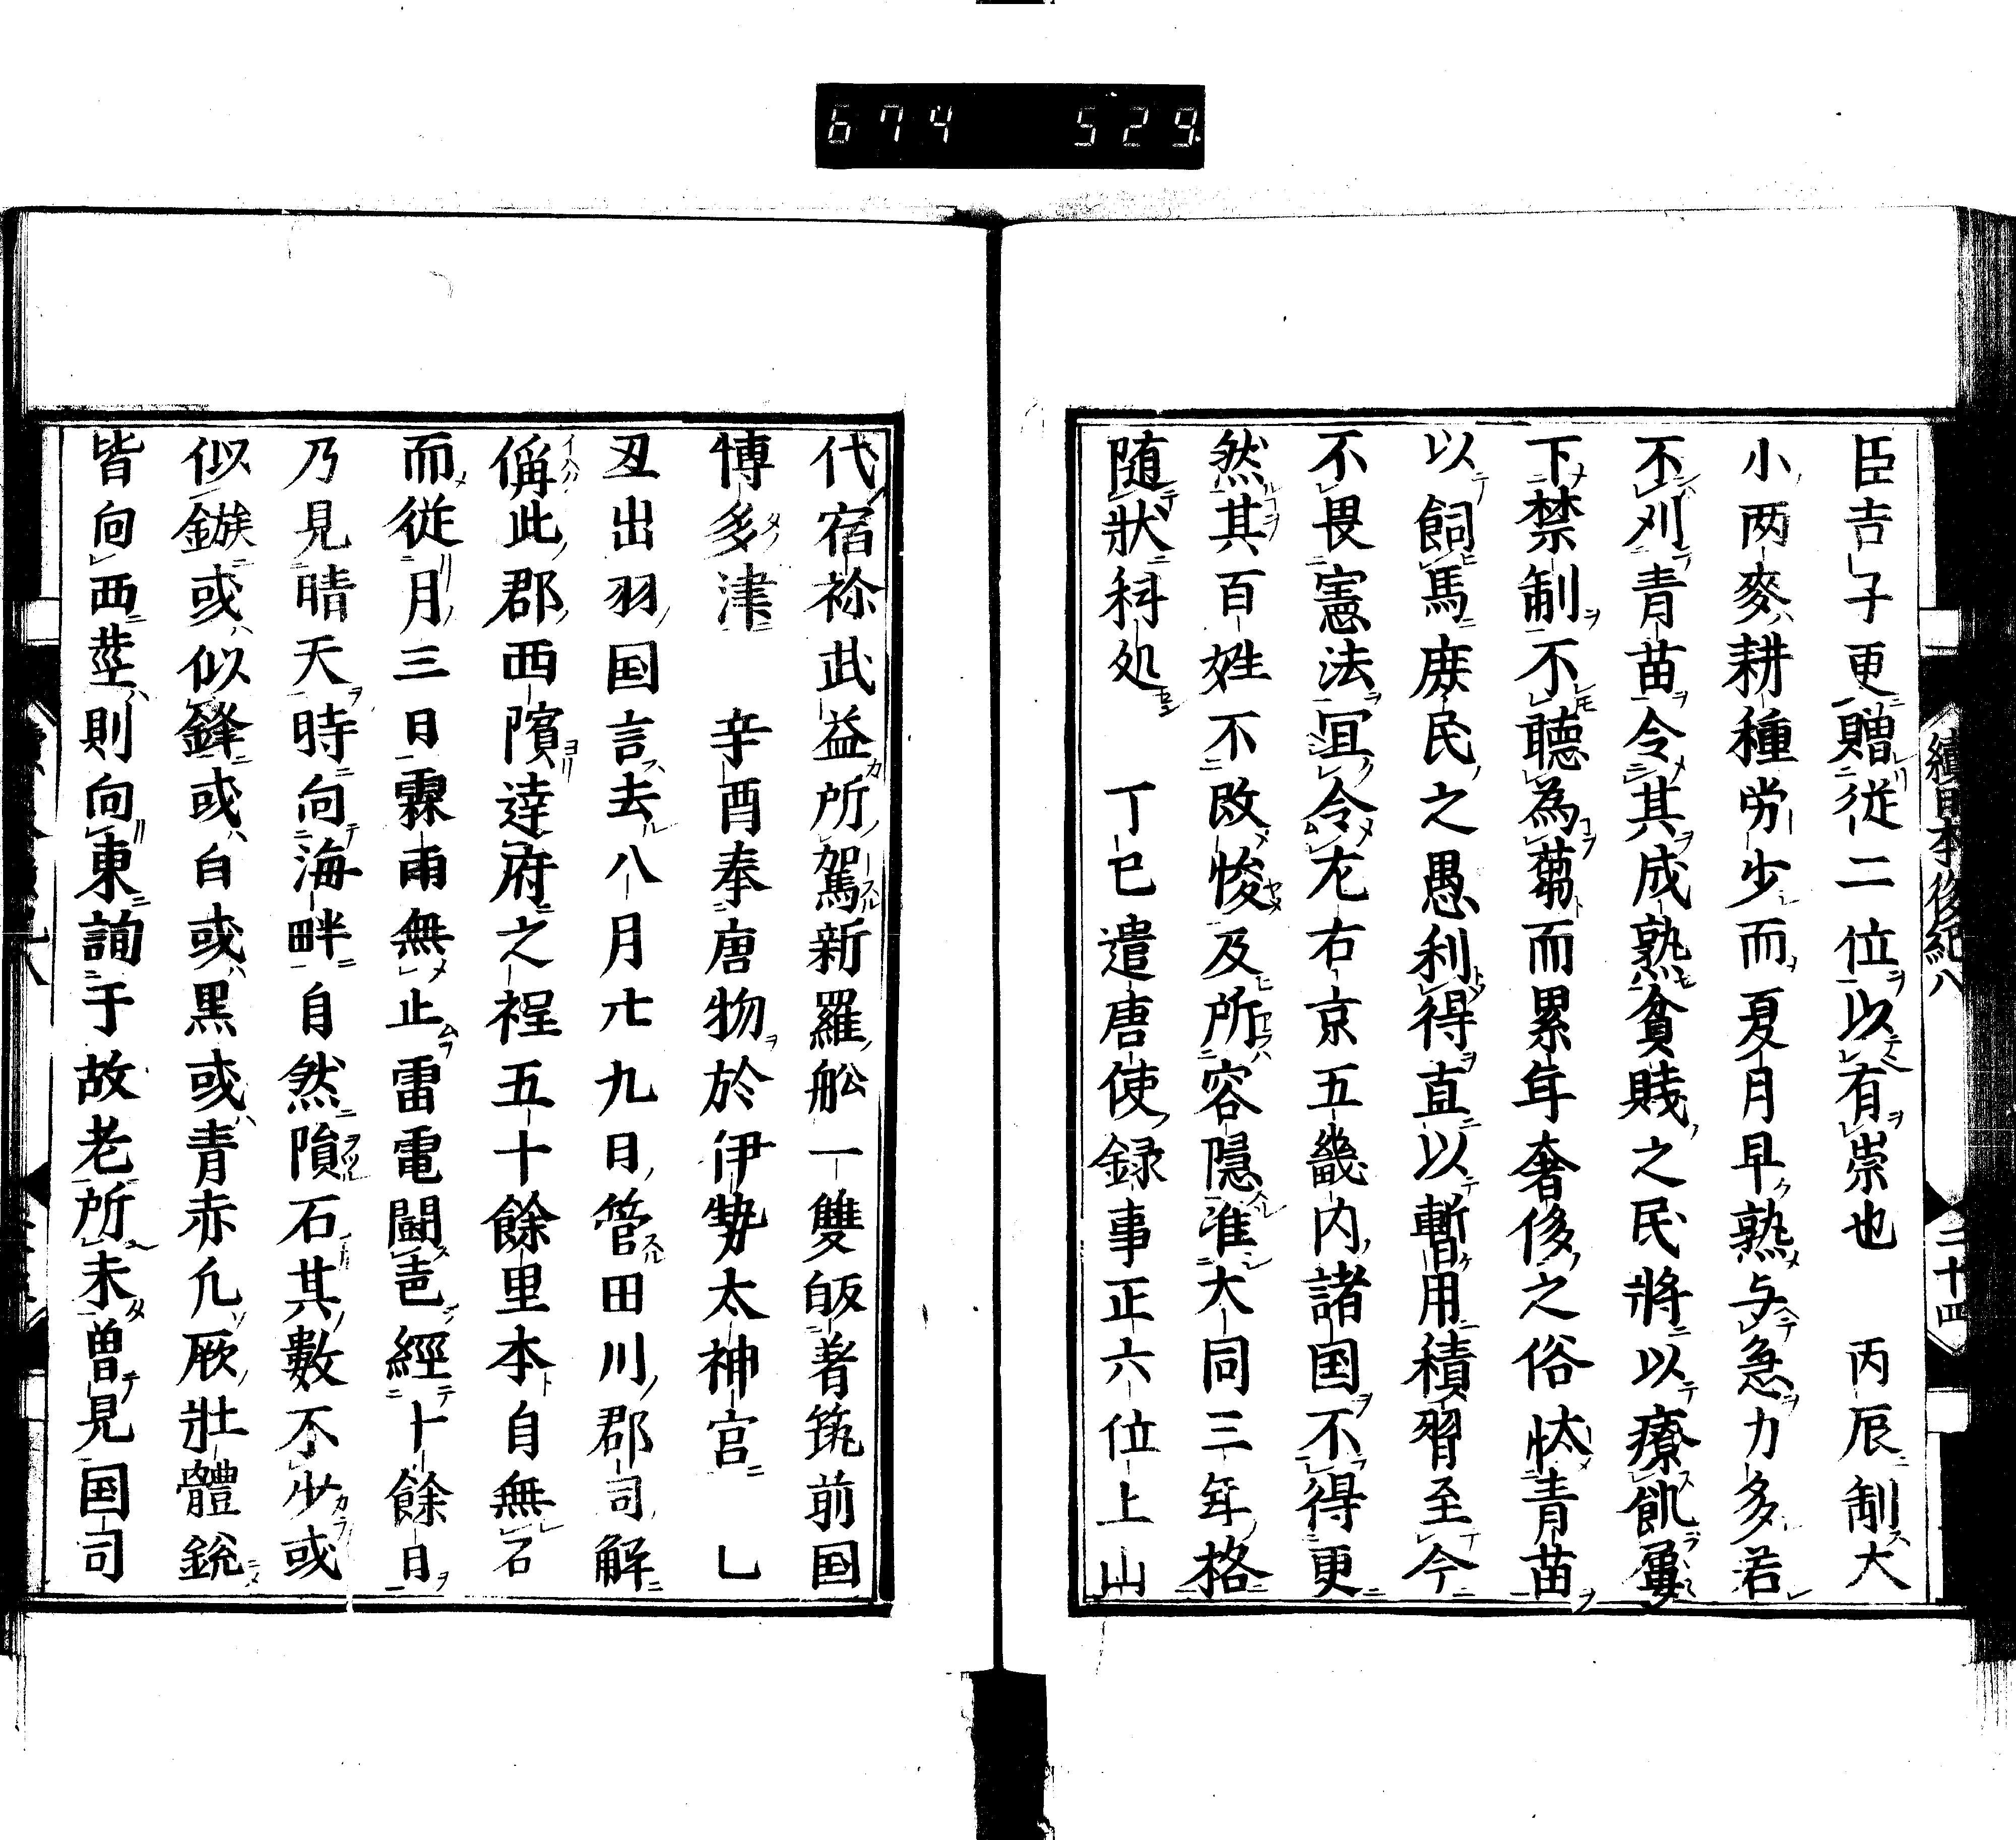 674 529
續日本後紀八
二十四
臣吉子更贈従二位以有崇也　丙辰制大
小两麥耕種労少而夏月早熟与急力多若
不刈青苗令其成熟貧賎之民將以療飢屢
下禁制不聴為蒭而累年奢侈之俗忲青苗
以飼馬庶民之愚利得直以暫用積習至今
不畏憲法冝令左右京五畿内諸国不得更
然其百姓不改悛及所容隠准大同三年格
随狀科处　丁巳遣唐使録事正六位上山
代宿祢武益所駕新羅舩一雙皈著筑前国
博多津　辛酉奉唐物於伊勢太神宮　乚
丑出羽国言去八月廿九日管田川郡司解
偁此郡西濱達府之程五十餘里本自無石
而從月三日霖雨無止雷電闘聲經十餘日
乃見晴天時向海畔自然隕石其數不少或
似鏃或似鋒或白或黒或青赤凢厥壯體鋭
皆向西莖則向東詢于故老所未曽見国司